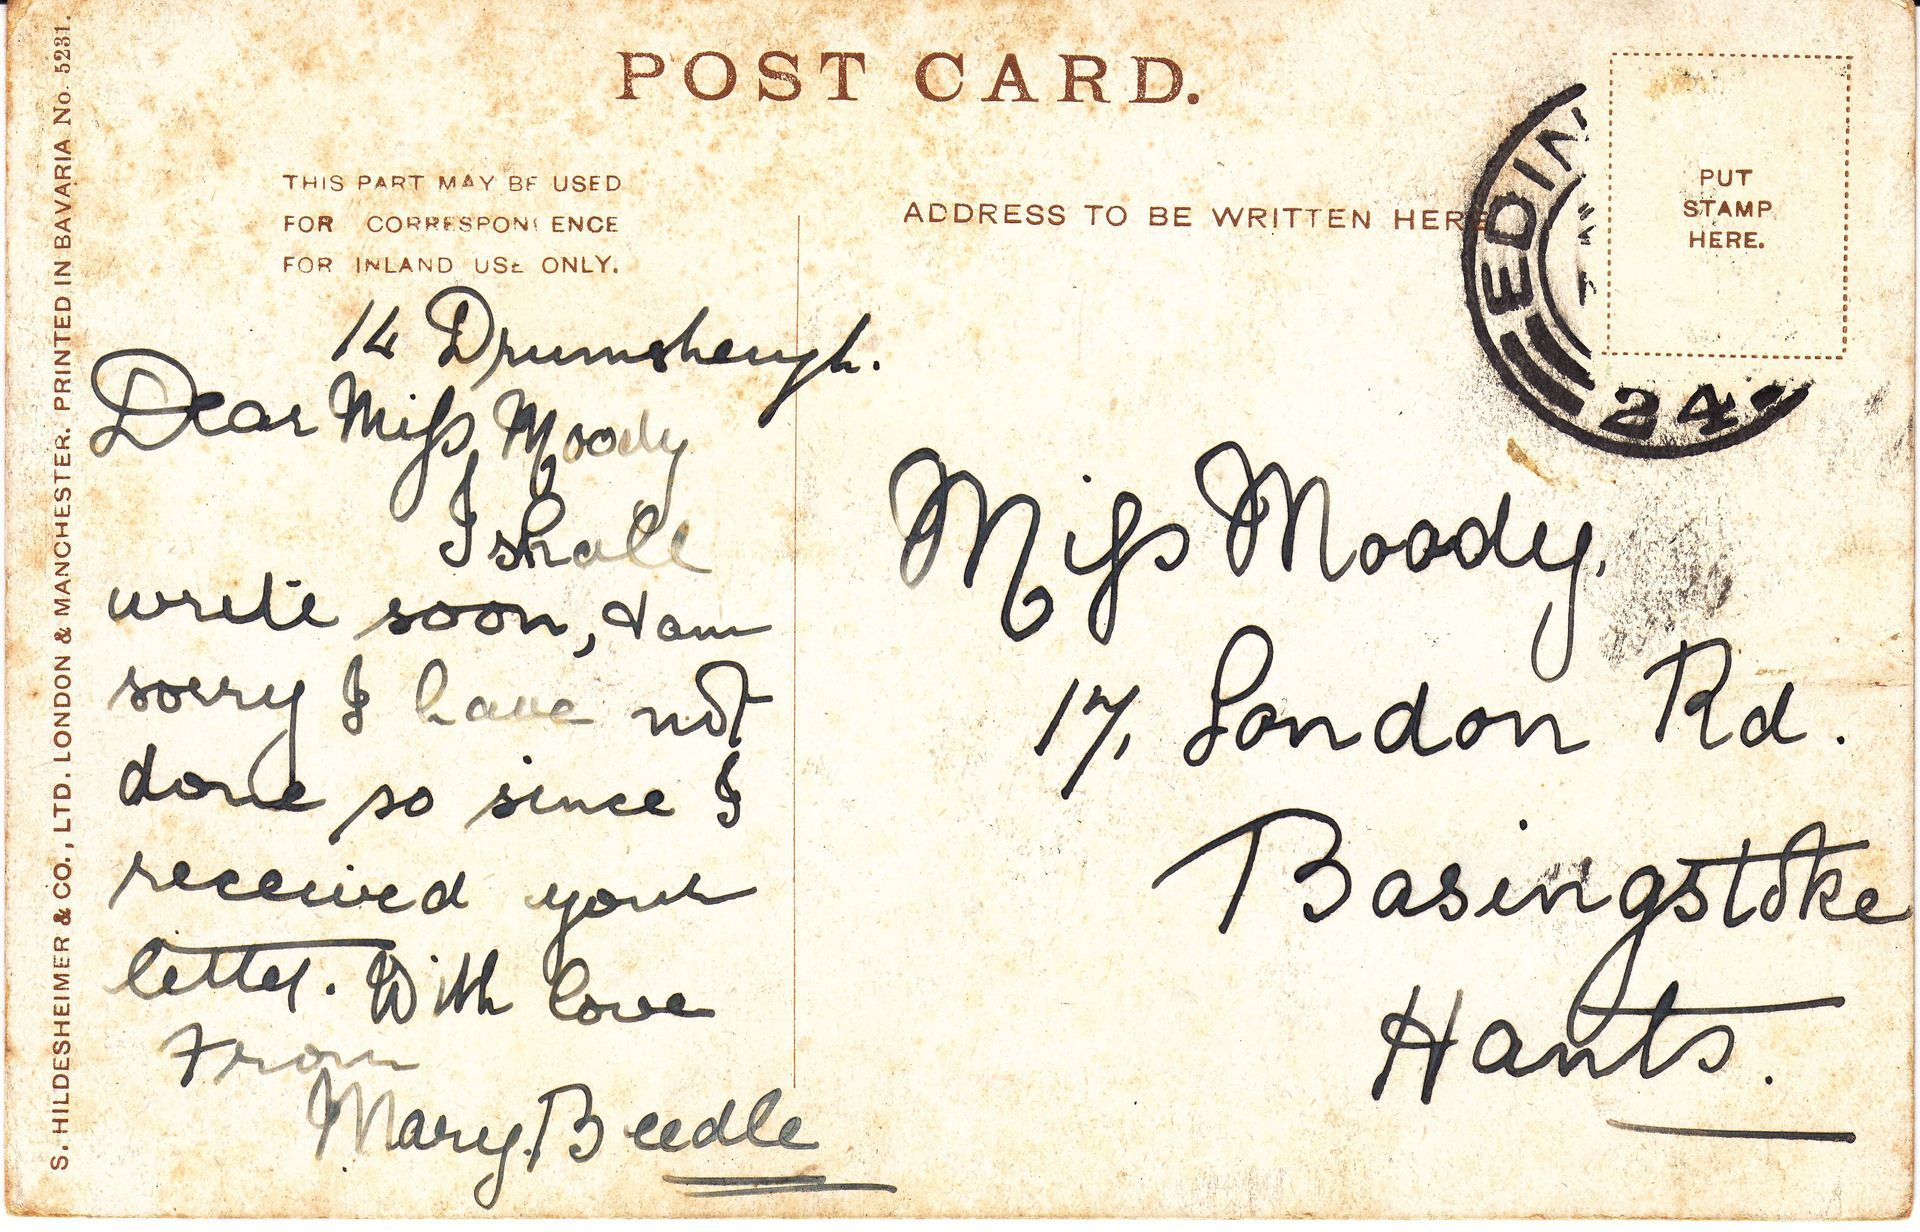 POST CARD.
THIS PART MAY BE USED
FOR CORRESPONDENCE
FOR INLAND USE ONLY.
ADDRESS TO BE WRITTEN HERE
PUT
STAMP
HERE.
EDIN
24
S. HILDESHEIMER & CO., LTD. LONDON & MANCHESTER. PRINTED IN BAVARIA No. 5231.
14 Drumsheugh.
Dear Miss Moody
I shall
write soon, & am
sorry I have not
done so since I
received your
letter. With love
From
Mary. Beedle
Miss Moody.
17, London Rd.
Basingstoke
Hants.